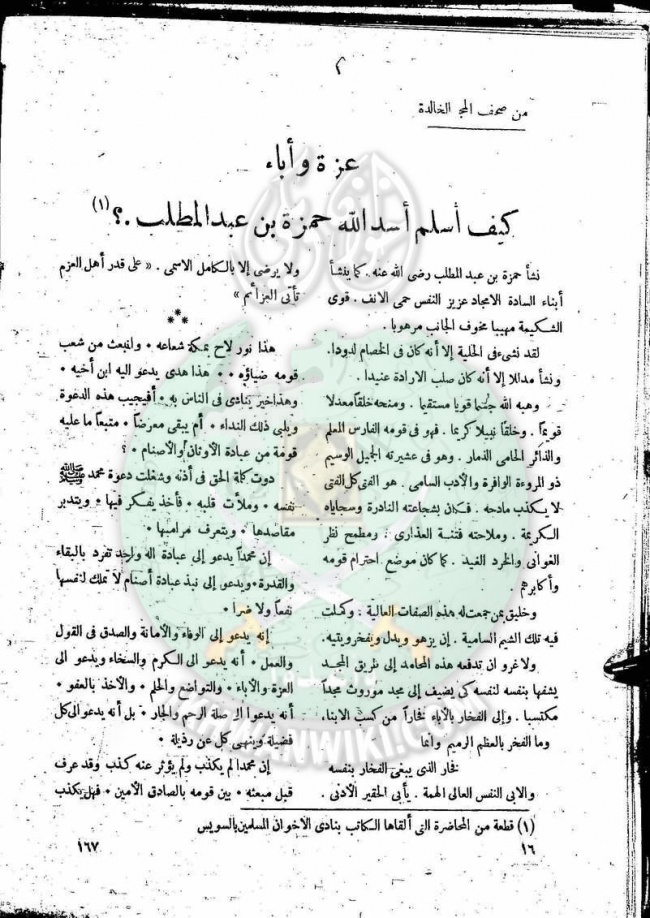 من صحف المجد الخالدة
عزة وأباء
كيف أسلم أسد الله حمزة بن عبد المطلب .؟ (١)
نشأ حمزة بن عبد المطلب رضى الله عنه . كما ينشأ
أبناء السادة الامجاد عزيز النفس حمى الانف . قوى
الشكيمة مهيبا مخوف الجانب مرهوبا .
لقد نشىء فى الحلية إلا أنه كان فى الخصام لدودا .
ونشأ مدللا إلا أنه كان صلب الارادة عنيدا .
وهبه الله جسما قويا مستقيما . ومنحه خلقاً معدلا
قويماً . وخلقاً نبيلا كريما . فهو فى قومه الفارس المعلم
والذائر الحامى الذمار . وهو فى عشيرته الجميل الوسيم
ذو المروءة الوافرة والأدب السامى . هو الفتى كل الفتى
لا يكذب مادحه . فكان بشجاعته النادرة وسجاياه
الكريمة . وملاحته فتنة العذارى . ومطمح نظر
الغوانى والخرد الغيد . كما كان موضع احترام قومه
وأكابرهم
وخليق بمن جمعت له هذه الصفات العالية : وكملت
فيه تلك الشيم السامية . إن يزهو ويدل ويفخر ويتيه .
ولا غرو ان تدفعه هذه المحامد إلى طريق المجد
يشقها بنفسه لنفسه كى يضيف إلى مجد موروث مجداً
مكتسبا . وإلى الفخار بالآباء فخاراً من كسب الابناء
وما الفخر بالعظم الرميم وانما
فخار الذى يبغى الفخار بنفسه
والابى النفس العالى الهمة . يأبى الحقير الأدنى .
ولا يرضى إلا بالكامل الاسمى . « على قدر أهل العزم
تأتى العزائم »
***
هذا نور لاح بمكة شعاعه • وانبعث من شعب
قومه ضياؤه • • هذا هدى يدعو اليه ابن أخيه •
وهذا خير يتنادى فى الناس به • أفيجيب هذه الدعوة
ويلبى ذلك النداء • أم يبقى معرضاً • متبعاً ما عليه
قومة من عبادة الأوثان والأصنام • ؟
دوت كلمة الحق فى أذنه وشغلت دعوة محمد ﷺ
نفسه • وملأت قلبه • فأخذ يفكر فيها • ويتدبر
مقاصدها • ويتعرف مراميها •
إن محمداً يدعو إلى عبادة اله واحد تفرد بالبقاء
والقدرة • ويدعو إلى نبذ عبادة أصنام لا تملك لنفسها
نفعاً ولا ضراً •
إنه يدعو إلى الوفاء والأمانة والصدق فى القول
والعمل • أنه يدعو الى الكرم والسخاء ويدعو الى
العزة والأباء • والتواضع والحلم • والأخذ بالعفو •
أنه يدعوا الى صلة الرحم والجار • بل أنه يدعو الى كل
فضيلة وينهى كل عن رذيلة •
إن محمداً لم يكذب ولم يؤثر عنه كذب وقد عرف
قبل مبعثه • بين قومه بالصادق الأمين • فهل يكذب
(١) قطعة من المحاضرة التى ألقاها الكاتب بنادى الأخوان المسلمين بالسويس
١٦
١٦٧
IKHWANWIKI.COM